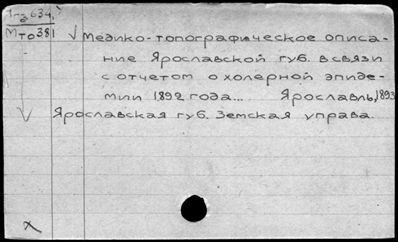 634.
Мто381
Медико-топографическое описа-
ние Ярославской губ. в связи
с отчетом о холерной эпиде-
мии 1892 года... Ярославль, 1893
Ярославская губ. Земская управа.